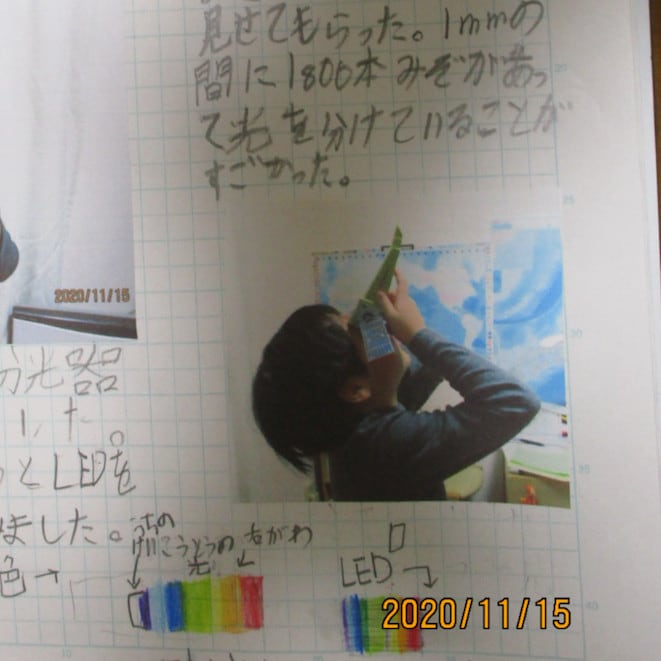 見せてもらった。1mmの
間に1800本みぞがあっ
て光を分けていることが
すごかった。
2020/11/15
分光器
した。
とLEDを
ました。
色→
うちの
けいこうとうの 右がわ
光
LED
2020/11/15
25
30
35
40
10